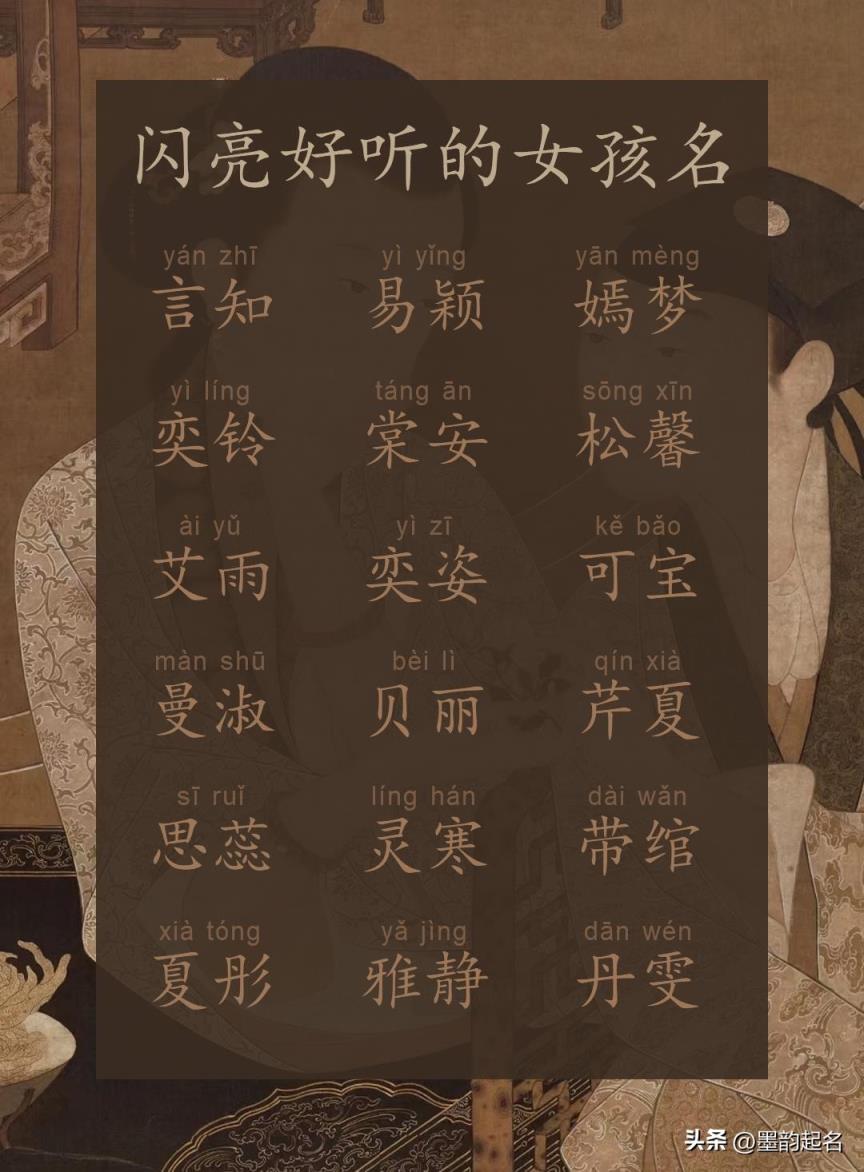 闪亮好听的女孩名
yán zhī yì yǐng yān mèng
言知 易颖 嫣梦
yì líng táng ān sōng xīn
奕铃 棠安 松馨
ài yǔ yì zī kě bǎo
艾雨 奕姿 可宝
màn shū bèi lì qín xià
曼淑 贝丽 芹夏
sī ruǐ líng hán dài wǎn
思蕊 灵寒 带绾
xià tóng yǎ jìng dān wén
夏彤 雅静 丹雯
头条 @墨韵起名